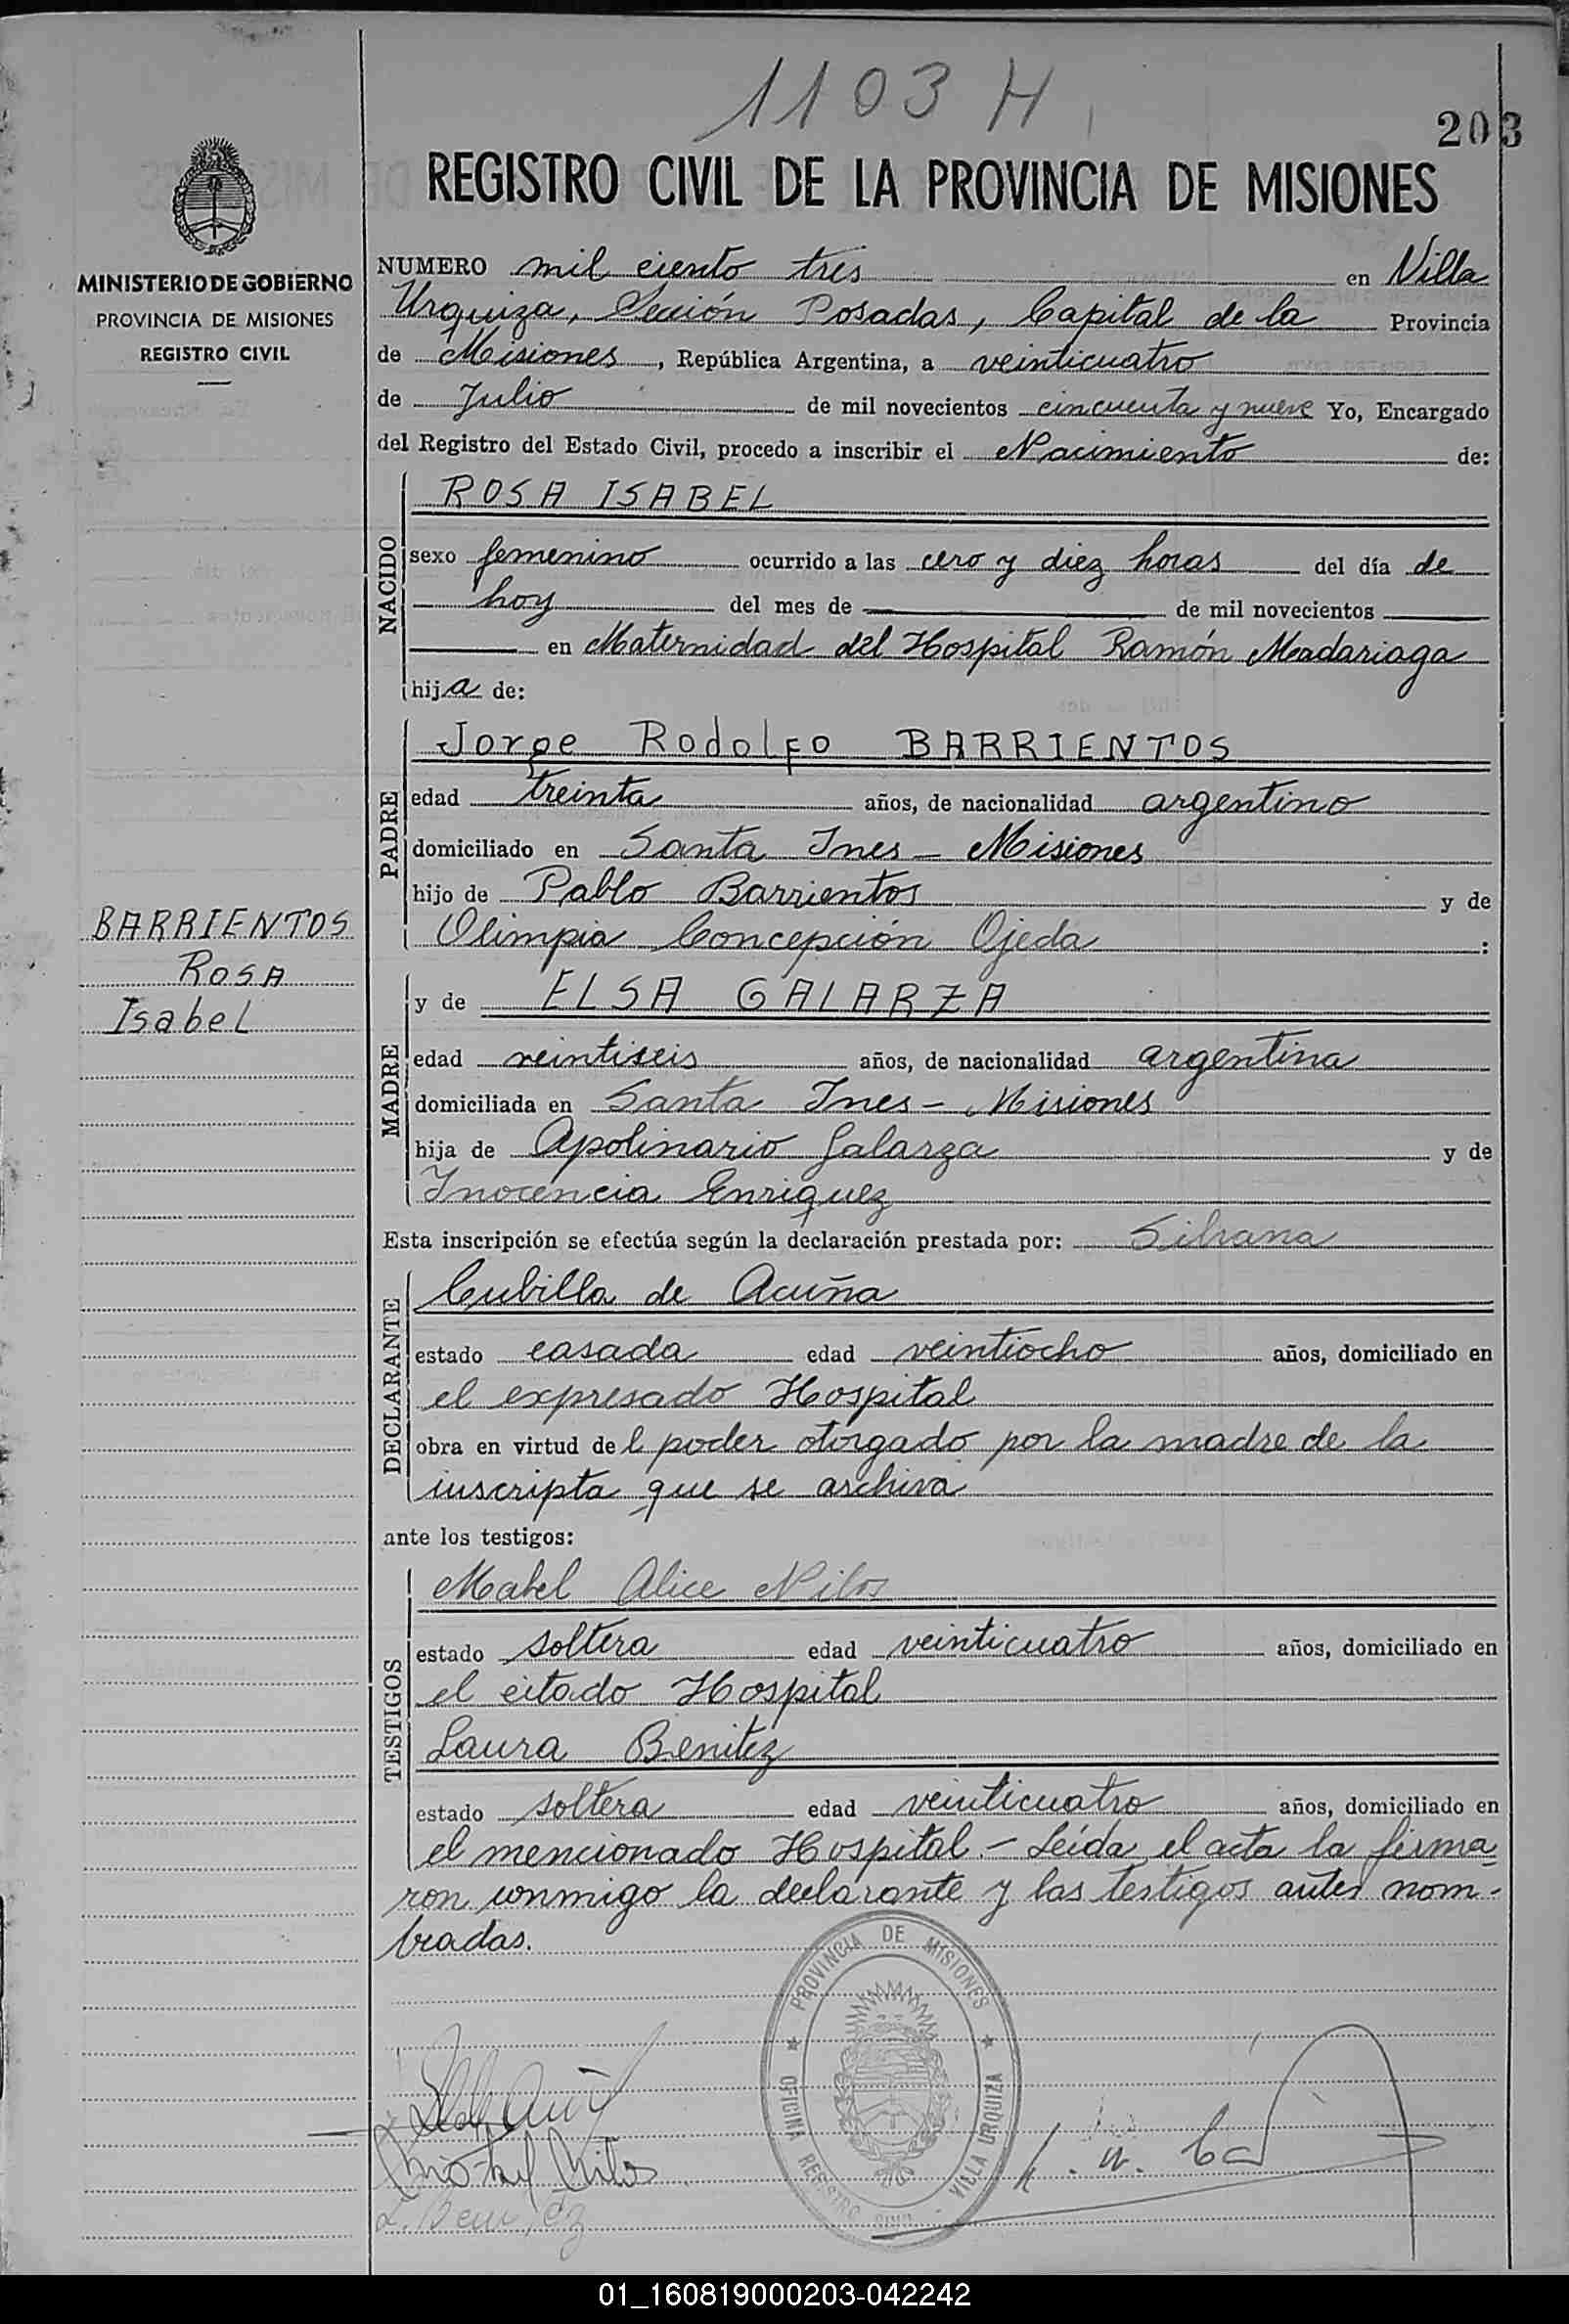 1103 H
203
MINISTERIO DE GOBIERNO
PROVINCIA DE MISIONES
REGISTRO CIVIL
REGISTRO CIVIL DE LA PROVINCIA DE MISIONES
NUMERO mil ciento tres en Villa
Urquiza, Sección Posadas, Capital de la Provincia
de Misiones, República Argentina, a veinticuatro
de Julio de mil novecientos cincuenta y nueve Yo, Encargado
del Registro del Estado Civil, procedo a inscribir el Nacimiento de:
NACIDO
ROSA ISABEL
sexo femenino ocurrido a las cero y diez horas del día de
hoy del mes de de mil novecientos
en Maternidad del Hospital Ramón Madariaga
hija de:
PADRE
Jorge Rodolfo BARRIENTOS
edad treinta años, de nacionalidad argentino
domiciliado en Santa Ines - Misiones
hijo de Pablo Barrientos y de
Olimpia Concepción Ojeda :
BARRIENTOS
ROSA
Isabel
MADRE
y de ELSA GALARZA
edad veintiseis años, de nacionalidad argentina
domiciliada en Santa Ines - Misiones
hija de Apolinario Galarza y de
Inocencia Enriquez
Esta inscripción se efectúa según la declaración prestada por: Silvana
DECLARANTE
Cubilla de Acuña
estado casada edad veintiocho años, domiciliado en
el expresado Hospital
obra en virtud del poder otorgado por la madre de la
inscripta que se archiva
ante los testigos:
TESTIGOS
Mabel Alice Nilos
estado soltera edad veinticuatro años, domiciliado en
el citado Hospital
Laura Benitez
estado soltera edad veinticuatro años, domiciliado en
el mencionado Hospital.- Leída el acta la firma=
ron conmigo la declarante y las testigos antes nom-
bradas.
PROVINCIA DE MISIONES
OFICINA REGISTRO CIVIL VILLA URQUIZA
L. Benitez
01_160819000203-042242